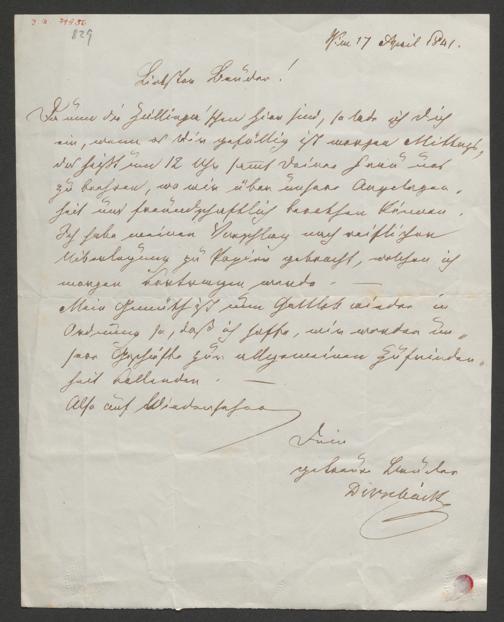 829
Wien 17 April 1841.
Liebster Bruder!
Da nun die hier sind, so lade ich Dich
ein, wenn es Dir gefällig ist morgen Mittags,
das heißt um 12 Uhr samt Deiner Frau uns
zu besuchen, wo wir über unsere Angelegen-
heit uns freundschaftlich besprechen können.
Ich habe meinen Vorschlag nach reiflicher
Überlegung zu Papier gebracht, welchen ich
morgen vortragen werde. —
Mein Gemüth ist nun Gottlob wieder in
Ordnung so, daß ich hoffe, wir werden un-
sere Geschäfte zur allgemeinen Zufrieden-
heit vollenden. —
Also auf Wiedersehen
Dein
getreuer Bruder